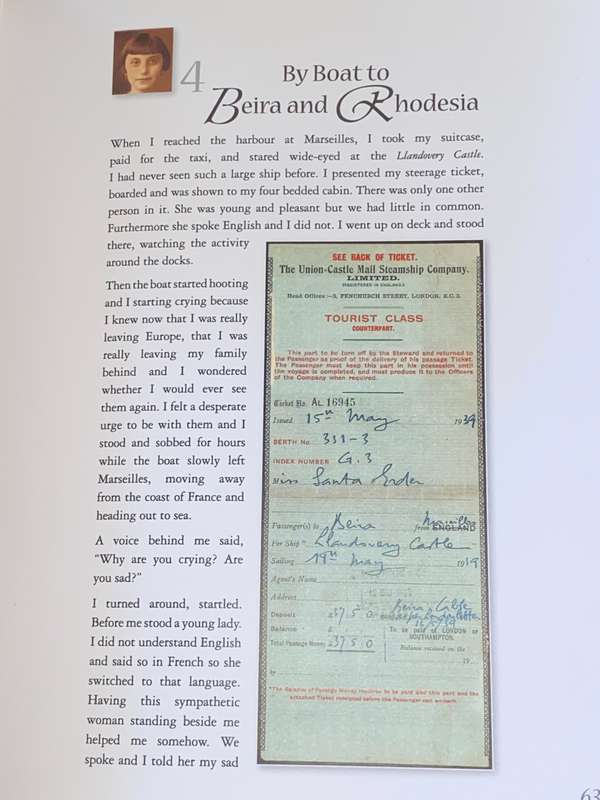 4
By Boat to
Beira and Rhodesia
When I reached the harbour at Marseilles, I took my suitcase,
paid for the taxi, and stared wide-eyed at the Llandovery Castle.
I had never seen such a large ship before. I presented my steerage ticket,
boarded and was shown to my four bedded cabin. There was only one other
person in it. She was young and pleasant but we had little in common.
Furthermore she spoke English and I did not. I went up on deck and stood
there, watching the activity
around the docks.
Then the boat started hooting
and I starting crying because
I knew now that I was really
leaving Europe, that I was
really leaving my family
behind and I wondered
whether I would ever see
them again. I felt a desperate
urge to be with them and I
stood and sobbed for hours
while the boat slowly left
Marseilles, moving away
from the coast of France and
heading out to sea.
A voice behind me said,
"Why are you crying? Are
you sad?"
I turned around, startled.
Before me stood a young lady.
I did not understand English
and said so in French so she
switched to that language.
Having this sympathetic
woman standing beside me
helped me somehow. We
spoke and I told her my sad
SEE BACK OF TICKET.
The Union-Castle Mail Steamship Company.
LIMITED.
(REGISTERED IN ENGLAND.)
Head Office:—3, FENCHURCH STREET, LONDON, E.C.3.
TOURIST CLASS
COUNTERPART.
This part to be torn off by the Steward and returned to
the Passenger as proof of the delivery of his passage Ticket.
The Passenger must keep this part in his possession until
the voyage is completed, and must produce it to the Officers
of the Company when required.
Ticket No. AL 16945
Issued 15th May 1939
BERTH No. 311-3
INDEX NUMBER G.3
Miss Santa
Passenger(s) to Beira from ENGLAND Marseilles
Per Ship "Llandovery Castle
Sailing 19th May 19
Agent's Name
Address
Deposit £37 5 0 Beira
Balance £ To be paid at LONDON or
SOUTHAMPTON.
Total Passage Money £37 5 0 Balance received on the
19
by
*The Balance of Passage Money requires to be paid and this part and the
attached Ticket receipted before the Passenger can embark.
63